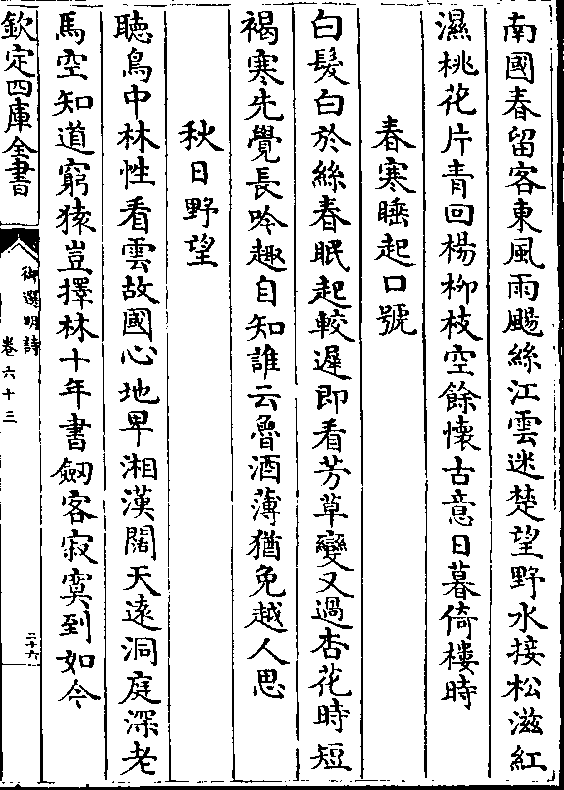 南國春留客東風雨颺絲江雲迷楚望野水接松滋紅
濕桃花片青回楊柳枝空餘懷古意日暮倚樓時
春寒睡起口號
白髮白於絲春眠起較遲即看芳草變又過杏花時短
褐寒先覺長吟趣自知誰云魯酒薄猶免越人思
秋日野望
聴鳥中林性看雲故國心地卑湘漢闊天遠洞庭深老
馬空知道窮猿豈擇林十年書劒客寂寞到如今
欽定四庫全書
御選明詩
卷六十三
二十六